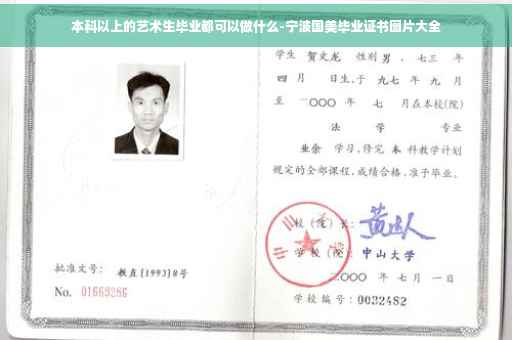 本科以上的艺术生毕业都可以做什么-宁波国美毕业证书图片大全
学生 贺文龙 性别 男 、七三 年
四 月 日生,于 九七 年 九 月
至 二〇〇〇 年 七 月在本校(院)
法 学 专业
业余 学习,修完 本 科教学计划
规定的全部课程,成绩合格,准予毕业。
校(院)长:
学校(院): 中山大学
二〇〇〇 年 七 月 一 日
批准文号: 教直[1993]8号
No. 01663286
学校编号: 0032482